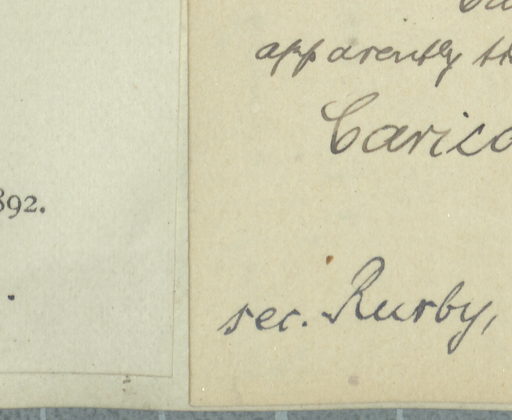 apparently
Carica
892.
sec. Rusby,